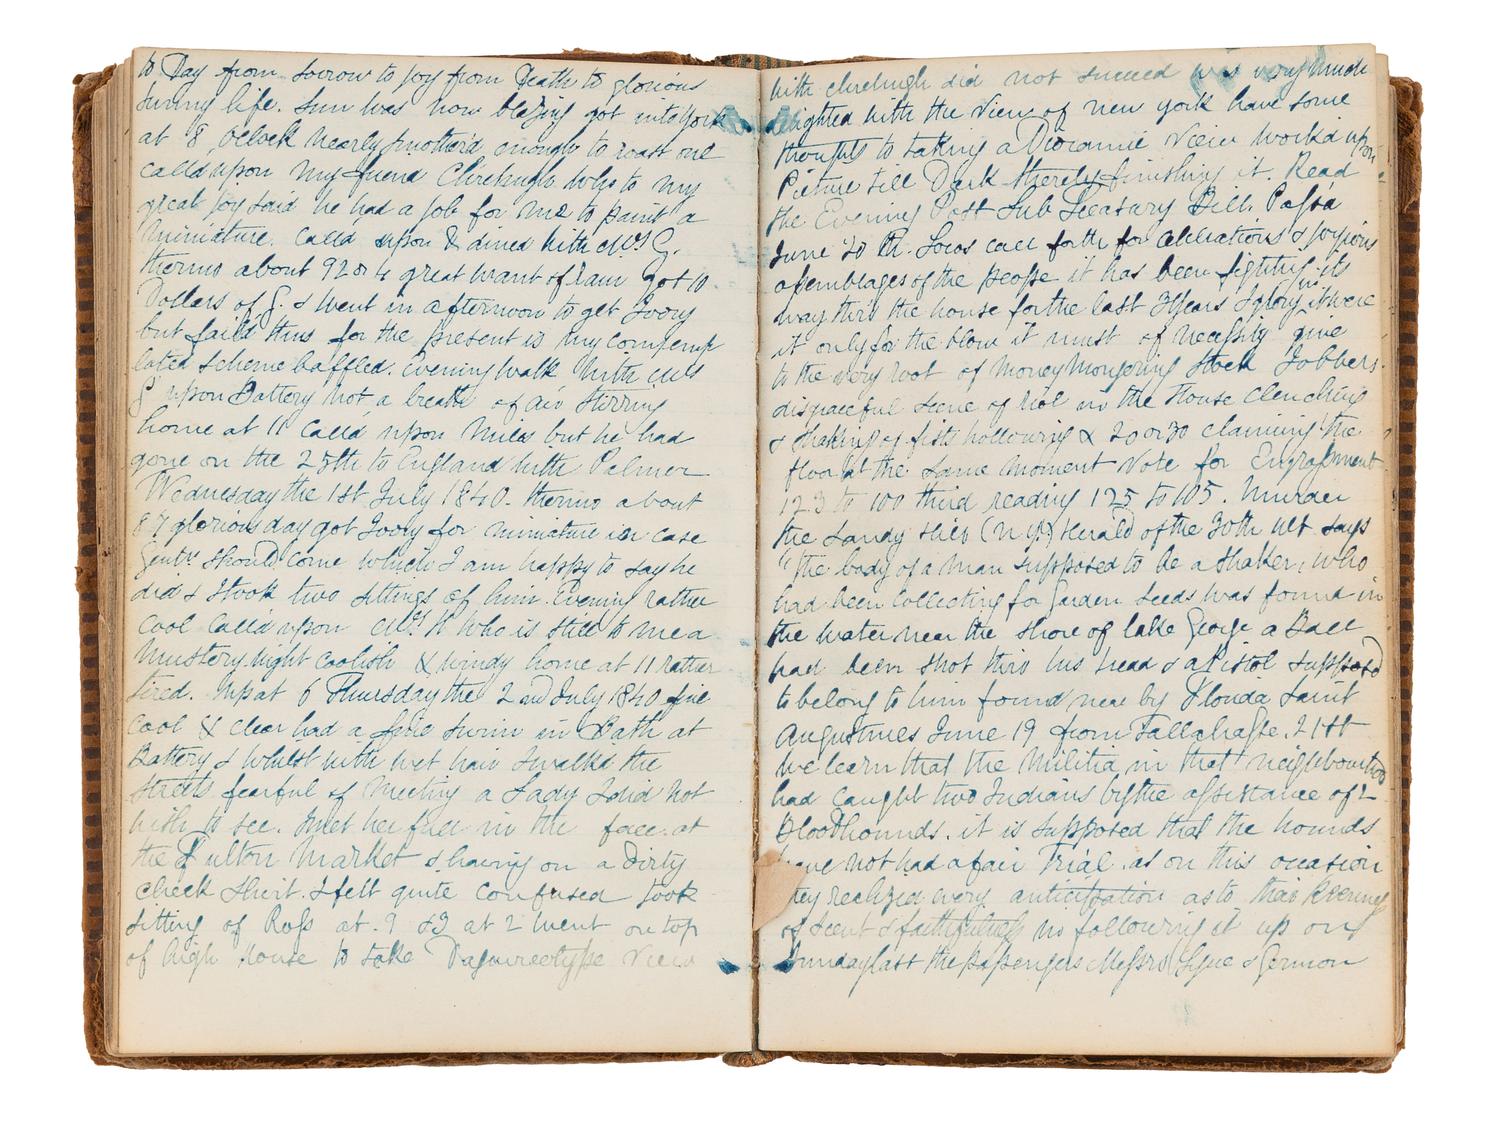 to Day from Sorrow to Joy from Death to glorious
sunny life. Sun was now blazing got into York
at 8 Oclock nearly smother'd enough to roast one
call'd upon my friend Chirehugh who to my
great Joy said he had a job for me to paint a
miniature. Calld upon & dined with Mrs G.
thermo about 92 or 4 great want of rain got 10
Dollars of G. & went in afternoon to get Ivory
but fail'd thus for the present is my contemp
lated scheme baffled. Evening walk with Mrs
G upon Battery not a breath of air stirring
home at 11 Call'd upon Miles but he had
gone on the 25th to England with Palmer
Wednesday the 1st July 1840. thermo about
87 glorious day got Ivory for miniature in case
Gentn should come which I am happy to say he
did & I took two sittings of him. Evening rather
cool Call'd upon Mrs H who is still to me a
mustery. night coolish & windy home at 11 rather
tired. up at 6 Thursday the 2nd July 1840 fine
cool & clear had a fine swim in Bath at
Battery & whilst with wet hair I walk'd the
streets fearful of meeting a Lady I did not
wish to see. I met her full in the face. at
the Fulton Market & having on a dirty
check shirt. I felt quite confused took
sitting of Ross at. 9 & 3 at 2 went on top
of high House to take Daguireotype View
with chirehugh did not succeed was very much
delighted with the view of new york have some
thoughts to taking a Dioramic View work'd upon
Picture till Dark therely finishing it. Read
the Evening Post Sub Treasury Bill. Passd
June 30 th. Locos call forth for celebrations & joyious
assemblages of the people it has been fighting its
way thro the house for the last 3 years I glory in it were
it only for the blow it must of necessity give
to the very root of money Mongering Stock Jobbers.
disgraceful scene of riot in the House clenching
& shaking of fists hollowing & 20 or 30 claiming the
floor at the same moment Vote for Engrossment
123 to 100 third reading 125 to 105. Murder
the Sandy Hill (N.Y) Herald of the 30th ult says
"the body of a man supposed to be a Shaker, who
had been collecting for Garden seeds was found in
the water near the shore of lake George a Ball
had been shot thro his head & a Pistol supposed
to belong to him found near by Florida Saint
Augustines June 19 from Tallahasse. 21st
we learn that the Militia in that neighbourhood
had caught two Indians by the assistance of 2
Bloodhounds. it is supposed that the hounds
have not had a fair trial. as on this occasion
they realized every anticipation as to their keening
of scent & faithfulness in following it up on
Sunday last the passengers Messrs Lyne & Germon